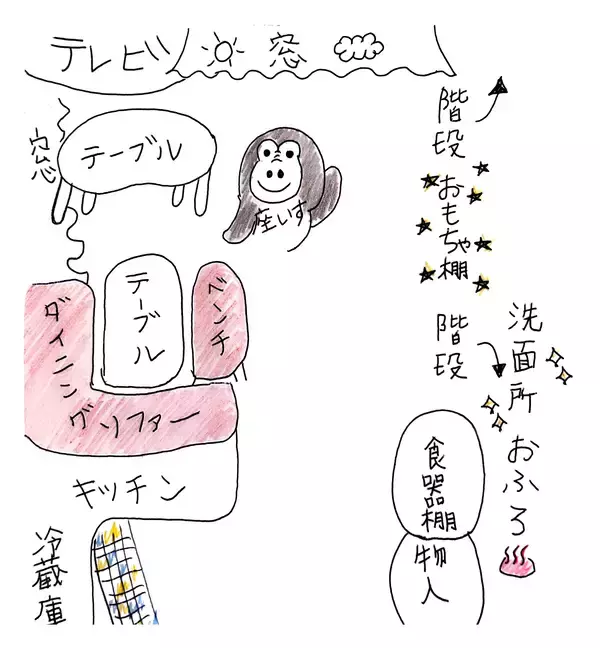 テレビ
窓
階段
窓
テーブル
座いす
おもちゃ棚
ダイニングソファー
テーブル
ベンチ
階段
洗面所
おふろ
キッチン
食器棚
物入
冷蔵庫